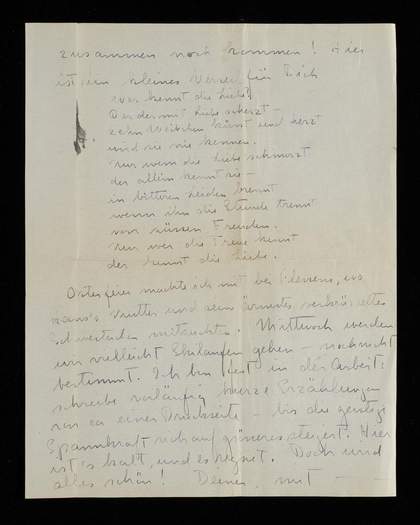 zusammen noch kommen! Hier
ist ein kleines Verserl für Dich
wer kennt die Liebe?
Der der mit Liebe scherzt –
zehn Weibchen küsst und herzt
und sie nie kennen.
Nur wem die Liebe schmerzt
der allein kennt sie –
in bitteren Leiden brennt
wenn ihn die Stunde trennt
von süssen Freuden.
Nur wer die Treue kennt
der kennt die Liebe.
Osterfeier machte ich mit bei
Mutter und sein
mitsuchten. Mittwoch werden
wir vielleicht Skilaufen gehen – noch nicht
bestimmt. Ich bin fest in der Arbeit:
schreibe vorläufig kurze Erzählungen
von ca einer Druckseite – bis die geistige
Spannkraft sich auf grösseres steigert. Hier
ist's kalt, und es regnet. Doch und
alles schön! Deinen, mit – –